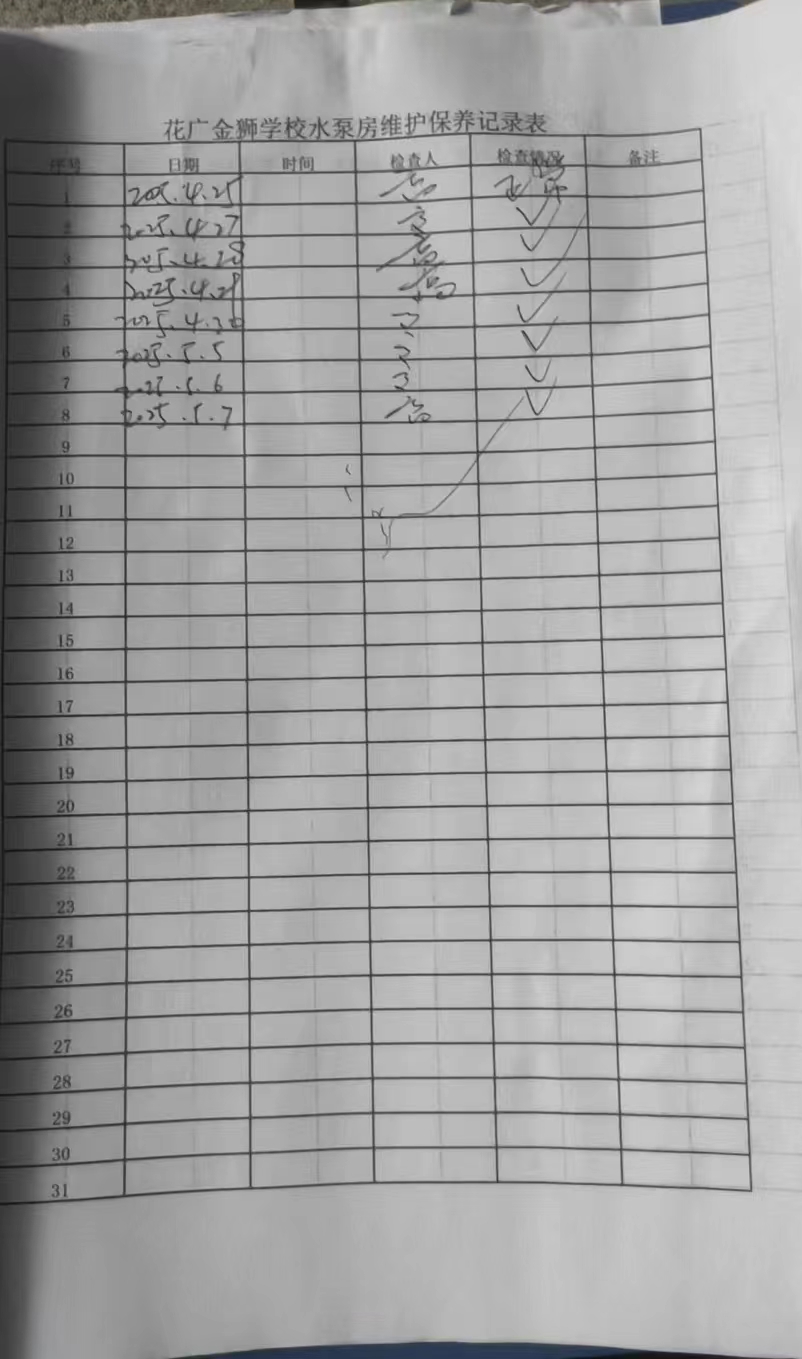 花广金狮学校水泵房维护保养记录表
序号 日期 时间 检查人 检查情况 备注
1 2025.4.25 正常
2 2025.4.27 ✓
3 2025.4.28 ✓
4 2025.4.29 ✓
5 2025.4.30 ✓
6 2025.5.5 ✓
7 2025.5.6 ✓
8 2025.5.7 ✓
9
10
11
12
13
14
15
16
17
18
19
20
21
22
23
24
25
26
27
28
29
30
31